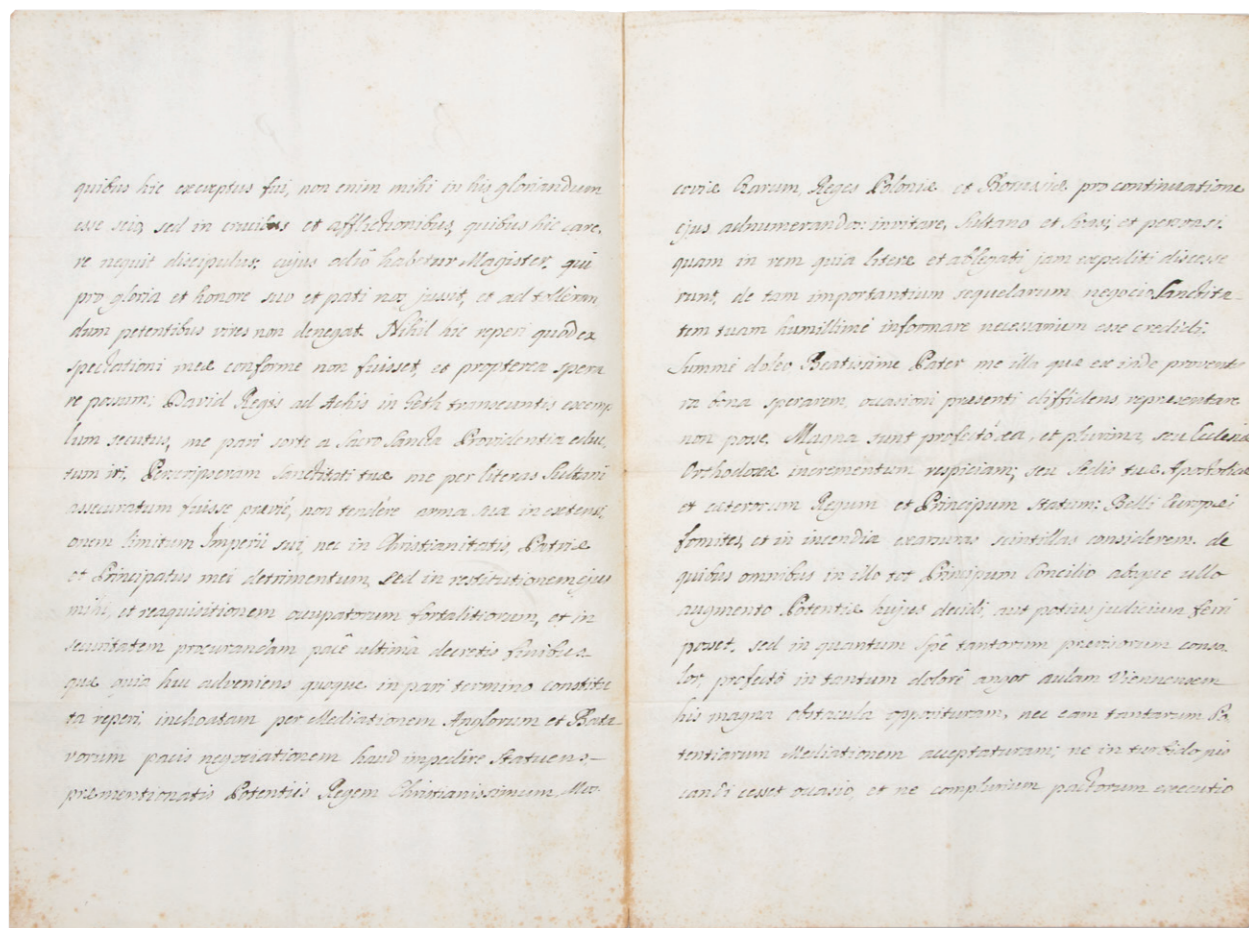 quibus hic exceptus fui, non enim mihi in his gloriandum
esse scio, sed in crucibus et afflictionibus, quibus hic care-
re nequit discipulus: cujus odiô habetur Magister, qui
pro gloria et honore suo et pati nos jussit, et ad tolleran
dum petentibus vires non denegat. Nihil hic reperi quod ex
spectationi meæ conforme non fuisset, et propterea spera
re possum; David Regis ad Achis in Geth transeuntis exemp
lum secutus, me pari sorte a Sacro Sancta Providentia educ
tum iri. Perscripseram Sanctitati tuæ me per literas Sultani
assecuratum fuisse præviè, non tendére arma sua in extensi
onem limitum Imperii sui, nec in Christianitatis, Patriæ
et Principatus mei detrimentum, sed in restitutionem ejus
mihi, et reaquisitionem occupatorum fortalitiorum, et in
securitatem procurandam pacê ultimâ decretis finibus
quæ quia huc adveniens quoque in pari termino constitu
ta reperi, inchoatam per Mediationem Anglorum et Bata
vorum pacis negotiationem haud impedire statuens
præmentionatis Potentiis Regem Christianissimum, Mos-
coviæ Czarum, Reges Poloniæ et Borussiæ pro continuatione
ejus adnumerandos invitare, Sultano et suasi, et persuasi.
quam in rem quia literæ et ablegati jam expediti discesse
runt, de tam importantium sequelarum negocio Sanctita-
tem tuam humillimé informare necessarium esse credidi.
Summi doleo Beatissime Pater me illa quæ ex inde proventu
ra bona sperarem, occasioni præsenti diffidens repræsentare
non posse. Magna sunt profectó ea, et plurima, seu Ecclesiæ
Orthodoxæ incrementum respiciam; seu Sedis tuæ Apostolicæ
et cæterorum Regum et Principum statum: Belli Europæi
fomites, et in incendia exarsuras scintillas considerem. de
quibus omnibus in illo tot Principum Concilio absque ullo
augmento Potentiæ hujus decidi, aut potius judicium ferri
posset, sed in quantum spê tantorum provisorum conso-
lor, profectó in tantum dolorê angor aulam Viennensem
his magna obstacula opposituram, nec eam tantarum Po
tentiarum Mediationem acceptaturam; ne in turbido pis
candi cesset occasio, et ne complurium pactorum executio